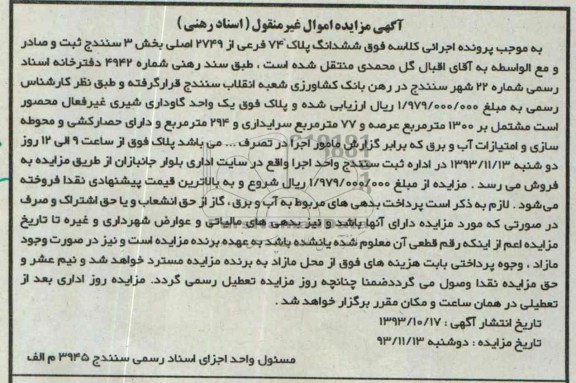 آگهی مزایده اموال غیر منقول ( اسناد رهنی )
به موجب پرونده اجرائی کلاسه فوق ششدانگ پلاک ۷۴ فرعی از ۲۷۴۹ اصلی بخش ۳ سنندج ثبت و صادر
و مع الواسطه به آقای اقبال گل محمدی منتقل شده است ، طبق سند رهنی شماره ۴۹۴۲ دفترخانه اسناد
رسمی شماره ۲۲ شهر سنندج در رهن بانک کشاورزی شعبه انقلاب سنندج قرارگرفته و طبق نظر کارشناس
رسمی به مبلغ ۱/۹۷۹/۰۰۰/۰۰۰ ریال ارزیابی شده و پلاک فوق یک واحد گاوداری شیری غیرفعال محصور
است مشتمل بر ۱۳۰۰ مترمربع عرصه و ۷۷ مترمربع سرایداری و ۲۹۴ مترمربع و دارای حصارکشی و محوطه
سازی و امتیازات آب و برق که برابر گزارش مامور اجرا در تصرف ... می باشد پلاک فوق از ساعت ۹ الی ۱۲ روز
دو شنبه ۱۳۹۳/۱۱/۱۳ در اداره ثبت سنندج واحد اجرا واقع در سایت اداری بلوار جانبازان از طریق مزایده به
فروش می رسد . مزایده از مبلغ ۱/۹۷۹/۰۰۰/۰۰۰ ریال شروع و به بالاترین قیمت پیشنهادی نقدا فروخته
می‌شود . لازم به ذکر است پرداخت بدهی های مربوط به آب و برق ، گاز از حق انشعاب و یا حق اشتراک و صرف
در صورتی که مورد مزایده دارای آنها باشد و نیز بدهی های مالیاتی و عوارض شهرداری و غیره تا تاریخ
مزایده اعم از اینکه رقم قطعی آن معلوم شده یانشده باشد به عهده برنده مزایده است و نیز در صورت وجود
مازاد ، وجوه پرداختی بابت هزینه های فوق از محل مازاد به برنده مزایده مسترد خواهد شد و نیم عشر و
حق مزایده نقدا وصول می گرددضمنا چنانچه روز مزایده تعطیل رسمی گردد. مزایده روز اداری بعد از
تعطیلی در همان ساعت و مکان مقرر برگزار خواهد شد .
تاریخ انتشار آگهی : ۱۳۹۳/۱۰/۱۷
تاریخ مزایده : دوشنبه ۹۳/۱۱/۱۳
مسئول واحد اجرای اسناد رسمی سنندج ۳۹۴۵ م الف